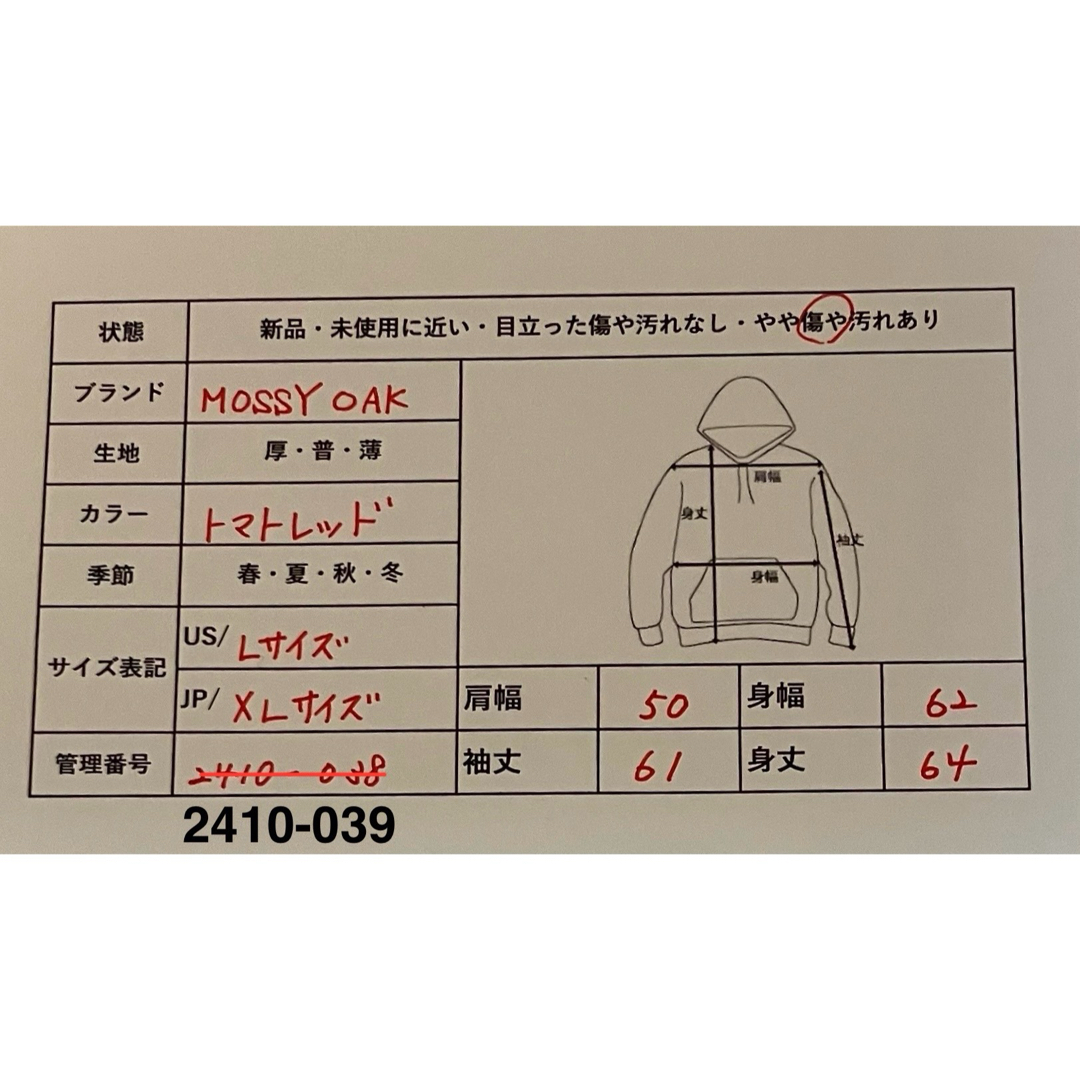 状態 新品・未使用に近い・目立った傷や汚れなし・やや傷や汚れあり
ブランド MOSSY OAK
生地 厚・普・薄
カラー トマトレッド
季節 春・夏・秋・冬
サイズ表記 US/ Lサイズ
JP/ XLサイズ
管理番号 2410-038
2410-039
肩幅
身丈
袖丈
身幅
肩幅 50 身幅 62
袖丈 61 身丈 64